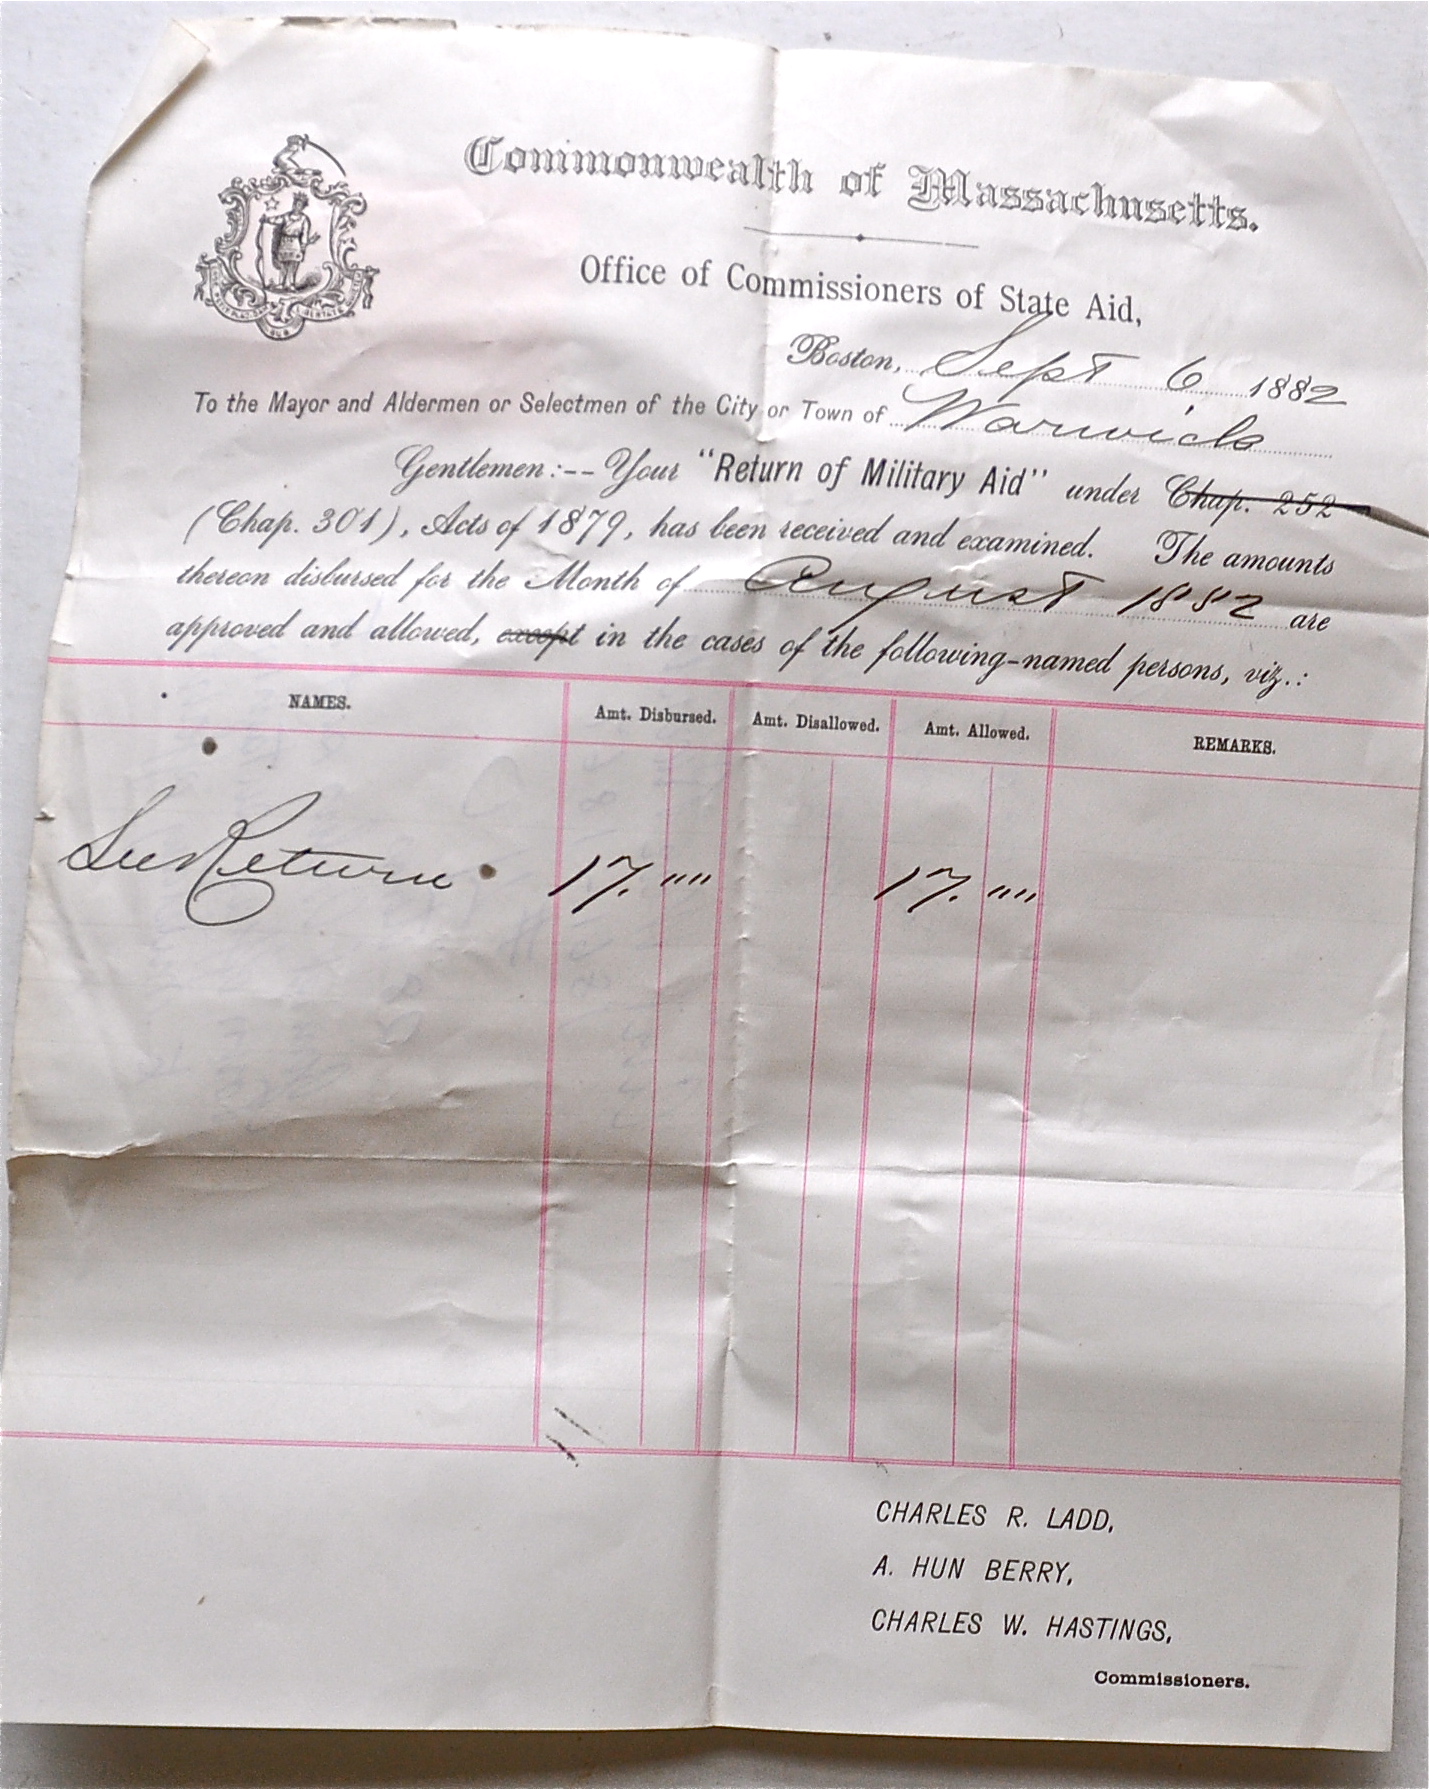 Commonwealth of Massachusetts.
Office of Commissioners of State Aid,
Boston, Sept 6 1882
To the Mayor and Aldermen or Selectmen of the City or Town of Warwick
Gentlemen:-- Your "Return of Military Aid" under Chap. 252
(Chap. 301), Acts of 1879, has been received and examined. The amounts
thereon disbursed for the Month of August 1882 are
approved and allowed, except in the cases of the following-named persons, viz.:
NAMES. Amt. Disbursed. Amt. Disallowed. Amt. Allowed. REMARKS.
See Return 17. "" 17. ""
CHARLES R. LADD,
A. HUN BERRY,
CHARLES W. HASTINGS,
Commissioners.